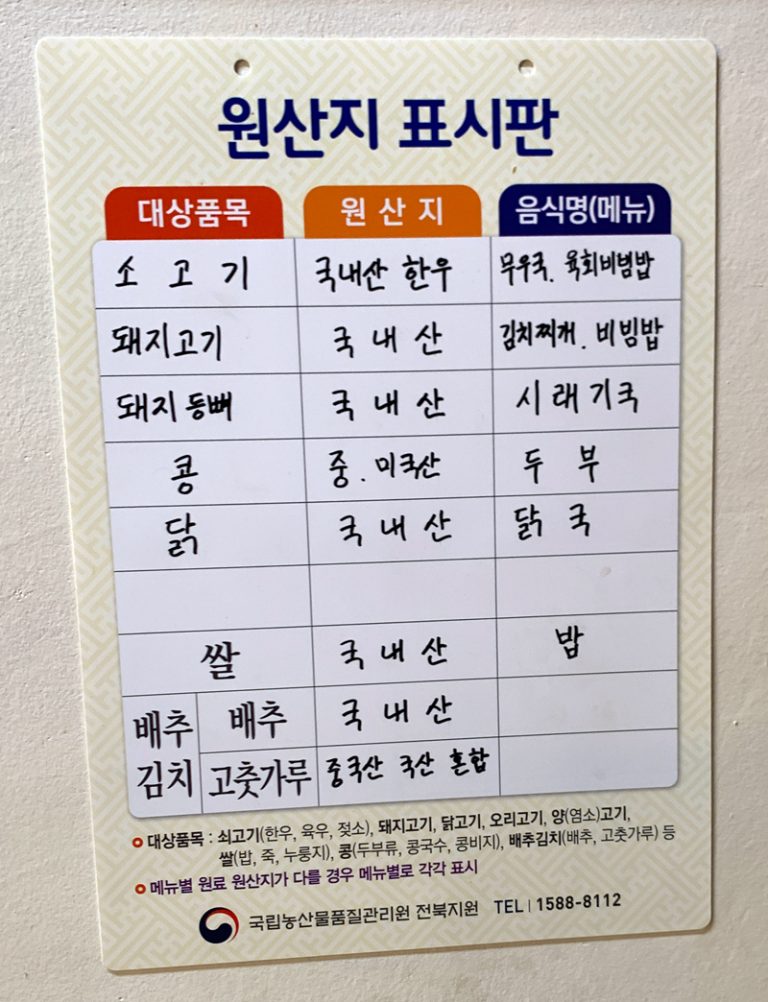 원산지 표시판
대상품목 원산지 음식명(메뉴)
소고기 국내산 한우 무우국. 육회비빔밥
돼지고기 국내산 김치찌개. 비빙밥
돼지등뼈 국내산 시래기국
콩 중. 미국산 두부
닭 국내산 닭국
쌀 국내산 밥
배추김치 배추 국내산
고춧가루 중국산 국산 혼합
대상품목 : 쇠고기(한우, 육우, 젖소), 돼지고기, 닭고기, 오리고기, 양(염소)고기,
쌀(밥, 죽, 누룽지), 콩(두부류, 콩국수, 콩비지), 배추김치(배추, 고춧가루) 등
메뉴별 원료 원산지가 다를 경우 메뉴별로 각각 표시
국립농산물품질관리원 전북지원 TEL | 1588-8112